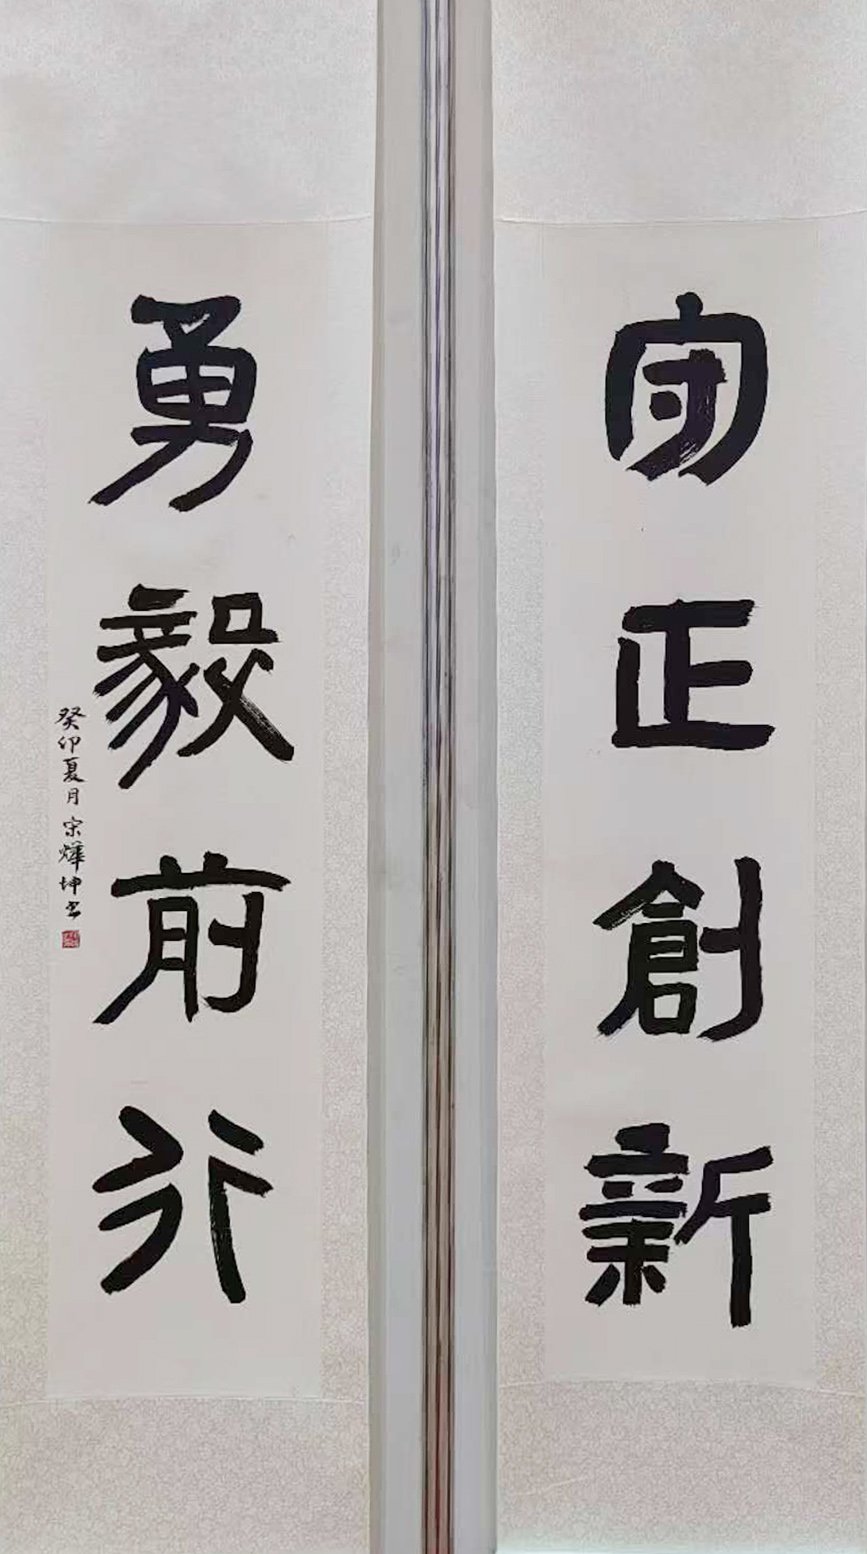 守正創新
勇毅前行
癸卯夏月宗燁坤书